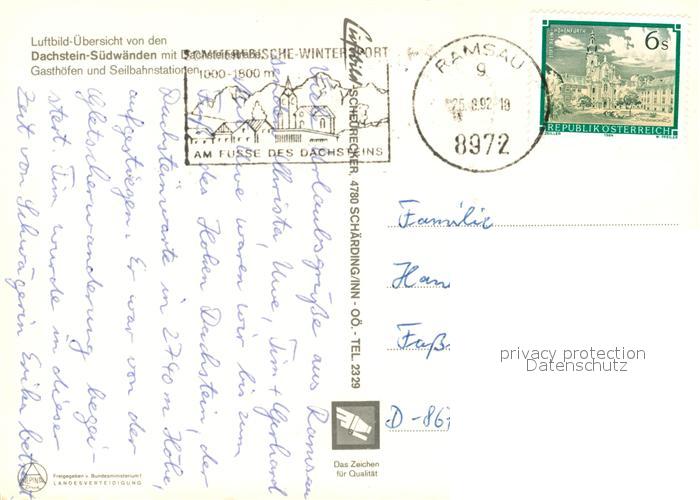 Luftbild-Übersicht von den
Dachstein-Südwänden mit
Gasthöfen und Seilbahnstationen
SOMMERFRISCHE-WINTERSPORT
1000-1800 m
AM FUSSE DES DACHSTEINS
RAMSAU
9
25.8.92-18
8972
STIFT REIN-HOHENFURTH
6s
REPUBLIK ÖSTERREICH
ZEILLER 1984 W. PFEILER
Luftbild SCHEURECKER, 4780 SCHÄRDING/INN - OÖ. - TEL. 23 29
Viele Urlaubsgrüße aus Ramsau
Christa, Uwe, Tim + Gerhard
waren wir bis zum
Fuße des Hohen Dachstein, der
Dachsteinwarte in 2740 m Höhe,
aufgestiegen. Er war von der
Gletscherwanderung begei-
stert. Tim wurde in dieser
Zeit von Schwägerin Erika betreut
Familie
Han
Faß
D-867
privacy protection
Datenschutz
Das Zeichen
für Qualität
ALPINE
Freigegeben v. Bundesministerium f.
LANDESVERTEIDIGUNG